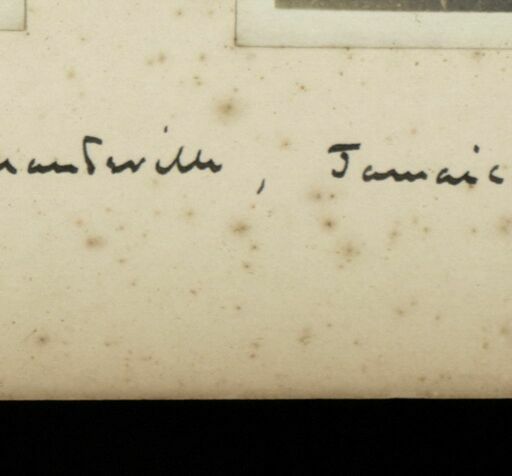 manderville, Jamaic